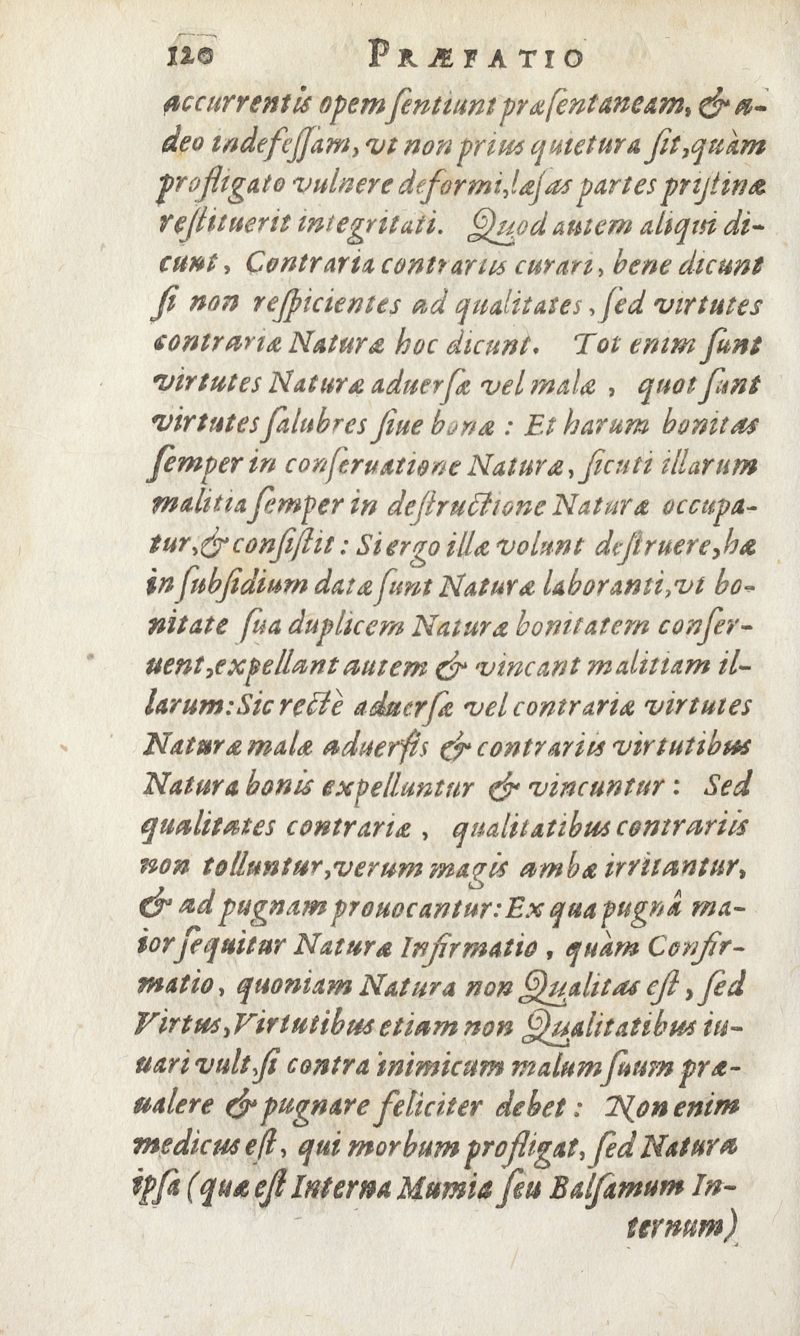 120 PRÆFATIO
accurrentis opem ſentiunt præſentaneam, & a-
deo indefeſſam, vt non prius quietura ſit, quàm
profligato vulnere deformi, læſas partes priſtinæ
reſtituerit integritati. Quod autem aliqui di-
cunt, Contraria contrariis curari, bene dicunt
ſi non reſpicientes ad qualitates, ſed virtutes
contrariæ Naturæ hoc dicunt. Tot enim ſunt
virtutes Naturæ aduerſæ vel malæ, quot ſunt
virtutes ſalubres ſiue bonæ : Et harum bonitas
ſemper in conſeruatione Naturæ, ſicuti illarum
malitia ſemper in deſtructione Naturæ occupa-
tur, & conſiſtit : Si ergo illæ volunt deſtruere, hæ
in ſubſidium datæ ſunt Naturæ laboranti, vt bo-
nitate ſua duplicem Naturæ bonitatem conſer-
uent, expellant autem & vincant malitiam il-
larum: Sic rectè aduerſæ vel contrariæ virtutes
Naturæ malæ aduerſis & contrariis virtutibus
Natura bonis expelluntur & vincuntur : Sed
qualitates contrariæ, qualitatibus contrariis
non tolluntur, verum magis ambæ irritantur,
& ad pugnam prouocantur: Ex qua pugnâ ma-
ior ſequitur Naturæ Infirmatio, quàm Confir-
matio, quoniam Natura non Qualitas eſt, ſed
Virtus, Virtutibus etiam non Qualitatibus iu-
uari vult, ſi contra inimicum malum ſuum præ-
ualere & pugnare feliciter debet : Non enim
medicus eſt, qui morbum profligat, ſed Natura
ipſa (quæ eſt Interna Mumia ſeu Balſamum In-
ternum)